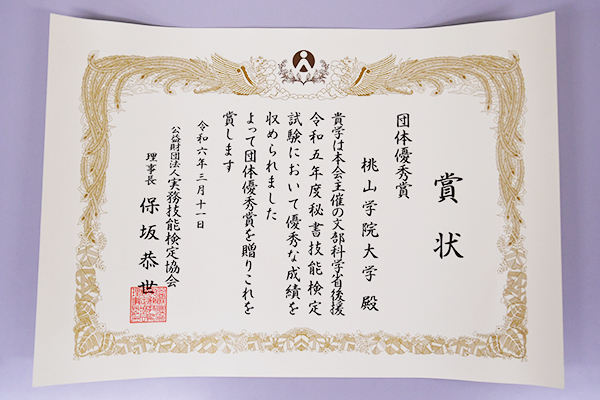 賞状
団体優秀賞
桃山学院大学殿
貴学は本会主催の文部科学省後援
令和五年度秘書技能検定
試験において優秀な成績を
収められました
よって団体優秀賞を贈りこれを
賞します
令和六年三月十一日
公益財団法人実務技能検定協会
理事長 保坂恭世